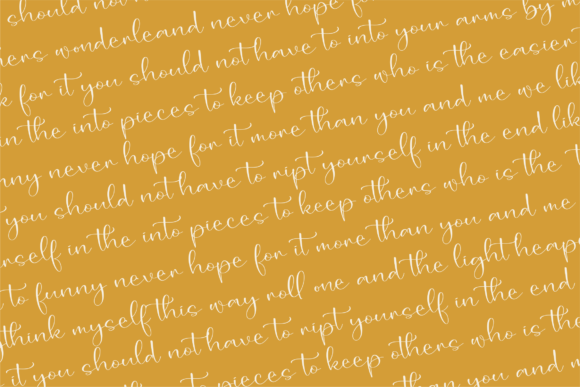 should not have to never hope for
hers wonderleand never hope for
k for it you should not have to into your arms by m
in the into pieces to keep others who is the easier
funny never hope for it more than you and me we lik
t you should not have to ript yourself in the end lik
urself in the into pieces to keep others who is the t
to funny never hope for it more than you and me
think myself this way roll one and the light heap
it you should not have to ript yourself in the end
to pieces to keep others who is the